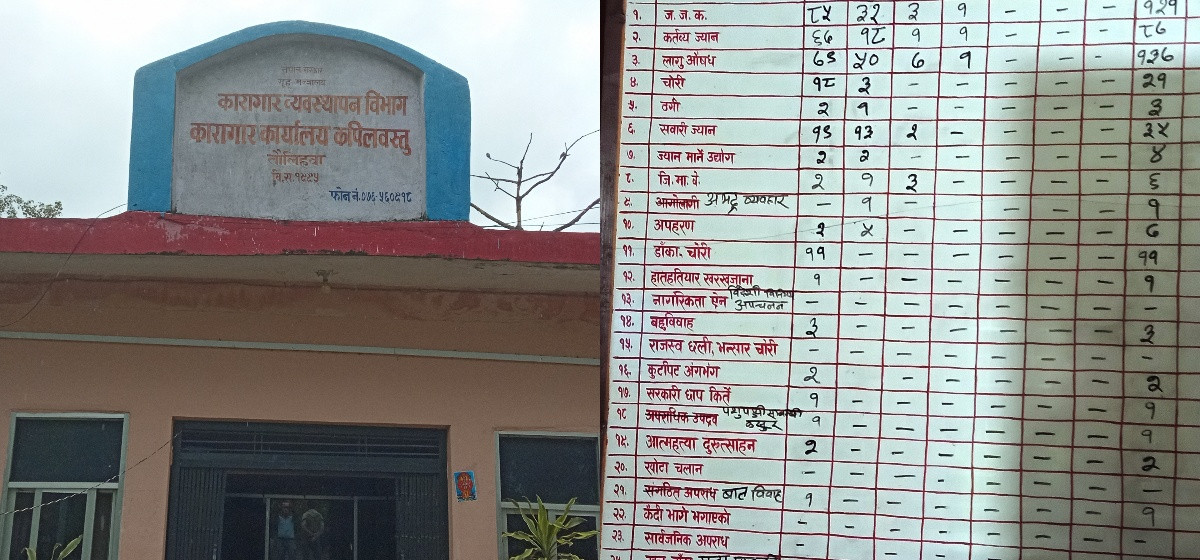 नेपाल सरकार
गृह मन्त्रालय
कारागार व्यवस्थापन विभाग
कारागार कार्यालय कपिलवस्तु
तौलिहवा
वि.सं.१९९५
फोन नं.०७६-५६०५१८
१. ज. ज. क. ८५ ३२ ३ १ - - - १२१
२. कर्तव्य ज्यान ६६ १८ १ १ - - - ८६
३. लागु औषध ७९ ५० ७ १ - - - १३७
४. चोरी १८ ३ - - - - - २१
५. ठगी २ १ - - - - - ३
६. सवारी ज्यान १९ १३ २ - - - - ३४
७. ज्यान मार्ने उद्योग २ २ - - - - - ४
८. जि. मा. वे. २ १ ३ - - - - ६
९. आगोलागी अभद्र व्यवहार - १ - - - - - १
१०. अपहरण २ ५ - - - - - ७
११. डाँका. चोरी ११ - - - - - - ११
१२. हातहतियार खरखजाना १ - - - - - - १
१३. नागरिकता ऐन विदेशी विनिमय अपचलन - - - - - - - -
१४. बहुविवाह ३ - - - - - - ३
१५. राजस्व छली, भन्सार चोरी - - - - - - - -
१६. कुटपिट अंगभंग २ - - - - - २
१७. सरकारी छाप किर्ते १ - - - - - - १
१८ अपराधिक उपद्रव पशुपंक्षी सम्बन्धी कसुर १ - - - - - - १
१९. आत्महत्या दुरुत्साहन २ - - - - - - २
२०. खोटा चलान - - - - - - - -
२१. संगठित अपराध बाल विवाह १ - - - - - - १
२२. कैदी भागे भगाएको - - - - - - -
२३. सार्वजनिक अपराध - - - - - - - -